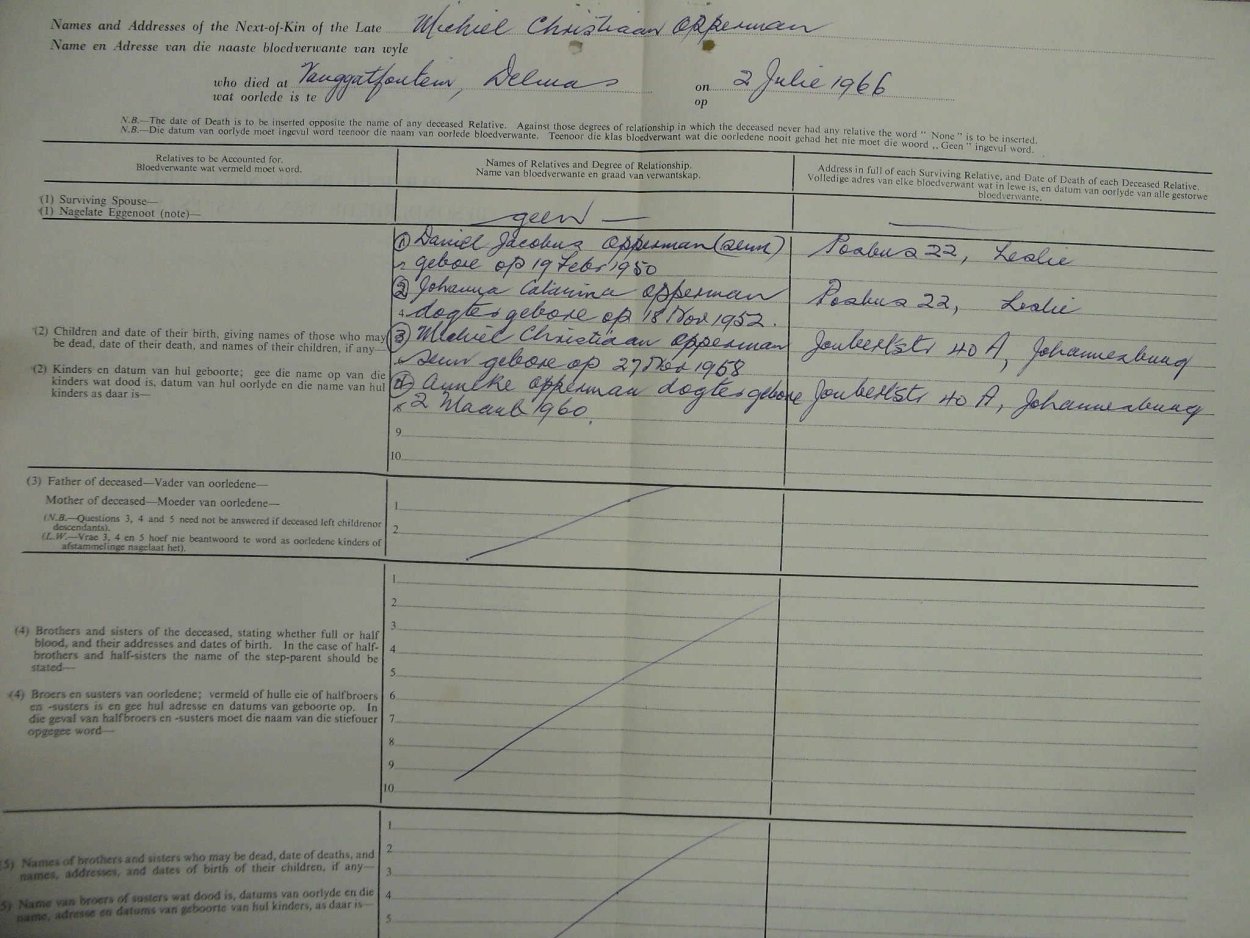 Names and Addresses of the Next-of-Kin of the Late Michiel Christiaan Opperman
Name en Adresse van die naaste bloedverwante van wyle
who died at Vanggatfontein, Delmas on 2 Julie 1966
wat oorlede is te op
N.B.—The date of Death is to be inserted opposite the name of any deceased Relative. Against those degrees of relationship in which the deceased never had any relative the word "None" is to be inserted.
N.B.—Die datum van oorlyde moet ingevul word teenoor die naam van oorlede bloedverwante. Teenoor die klas bloedverwant wat die oorledene nooit gehad het nie moet die woord „Geen" ingevul word.
Relatives to be Accounted for.
Bloedverwante wat vermeld moet word.
Names of Relatives and Degree of Relationship.
Name van bloedverwante en graad van verwantskap.
Address in full of each Surviving Relative, and Date of Death of each Deceased Relative.
Volledige adres van elke bloedverwant wat in lewe is, en datum van oorlyde van alle gestorwe
bloedverwante.
(1) Surviving Spouse—
(1) Nagelate Eggenoot (note)—
geen
(2) Children and date of their birth, giving names of those who may
be dead, date of their death, and names of their children, if any—
(2) Kinders en datum van hul geboorte; gee die name op van die
kinders wat dood is, datum van hul oorlyde en die name van hul
kinders as daar is—
1 Daniel Jacobus Opperman (seun) Posbus 22, Leslie
gebore op 19 Febr 1950
2 Johanna Catarina Opperman Posbus 22, Leslie
4 dogter gebore op 18 Nov 1952.
3 Michiel Christiaan Opperman Joubertstr 40 A, Johannesburg
seun gebore op 27 Nov 1958
4 Anneke Opperman dogter gebore Joubertstr 40 A, Johannesburg
2 Maart 1960.
9
10
(3) Father of deceased—Vader van oorledene—
Mother of deceased—Moeder van oorledene—
(N.B.—Questions 3, 4 and 5 need not be answered if deceased left childrenor
descendants).
(L.W.—Vrae 3, 4 en 5 hoef nie beantwoord te word as oorledene kinders of
afstammelinge nagelaat het).
1
2
(4) Brothers and sisters of the deceased, stating whether full or half
blood, and their addresses and dates of birth. In the case of half-
brothers and half-sisters the name of the step-parent should be
stated—
(4) Broers en susters van oorledene; vermeld of hulle eie of halfbroers
en -susters is en gee hul adresse en datums van geboorte op. In
die geval van halfbroers en -susters moet die naam van die stiefouer
opgegee word—
1
2
3
4
5
6
7
8
9
10
(5) Names of brothers and sisters who may be dead, date of deaths, and
names, addresses, and dates of birth of their children, if any—
5) Name van broers of susters wat dood is, datums van oorlyde en die
name, adresse en datums van geboorte van hul kinders, as daar is—
1
2
3
4
5